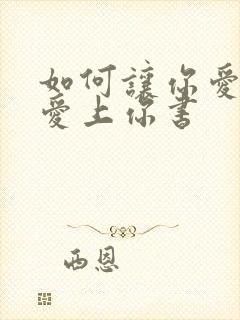 如何讓你愛
愛上你書
西恩